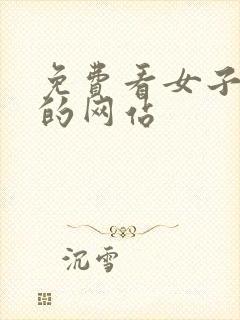 免费看女子
的网站
沉雪